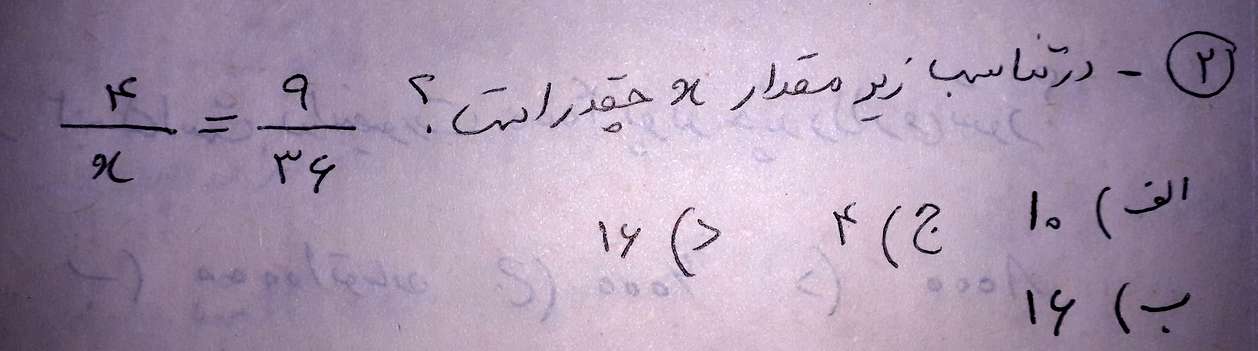 ۲ - در تناسب زیر مقدار x چقدر است؟ ۴/x = ۹/۳۶
الف) ۱۰ ج) ۴ د) ۱۶
ب) ۱۶